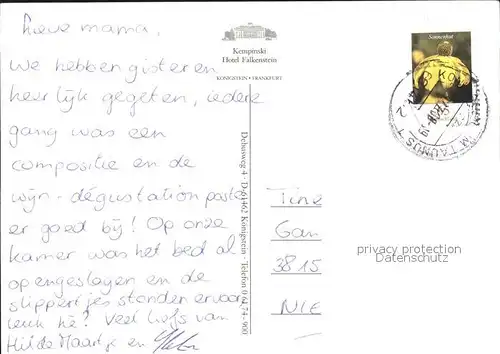 Lieve mama,
We hebben gisteren
heerlijk gegeten, iedere
gang was een
compositie en de
wijn-dégustation paste
er goed bij! Op onze
kamer was het bed al
opengeslagen en de
slippertjes stonden ervoor
leuk hè? Veel liefs van
Hilde Maartje en
Kempinski
Hotel Falkenstein
KÖNIGSTEIN • FRANKFURT
Debusweg 4 · D-61462 Königstein · Telefon 0 61 74 - 900
Sonnenhut
IM TAUNUS 1
Tine
Gan
3815
NIE
privacy protection
Datenschutz